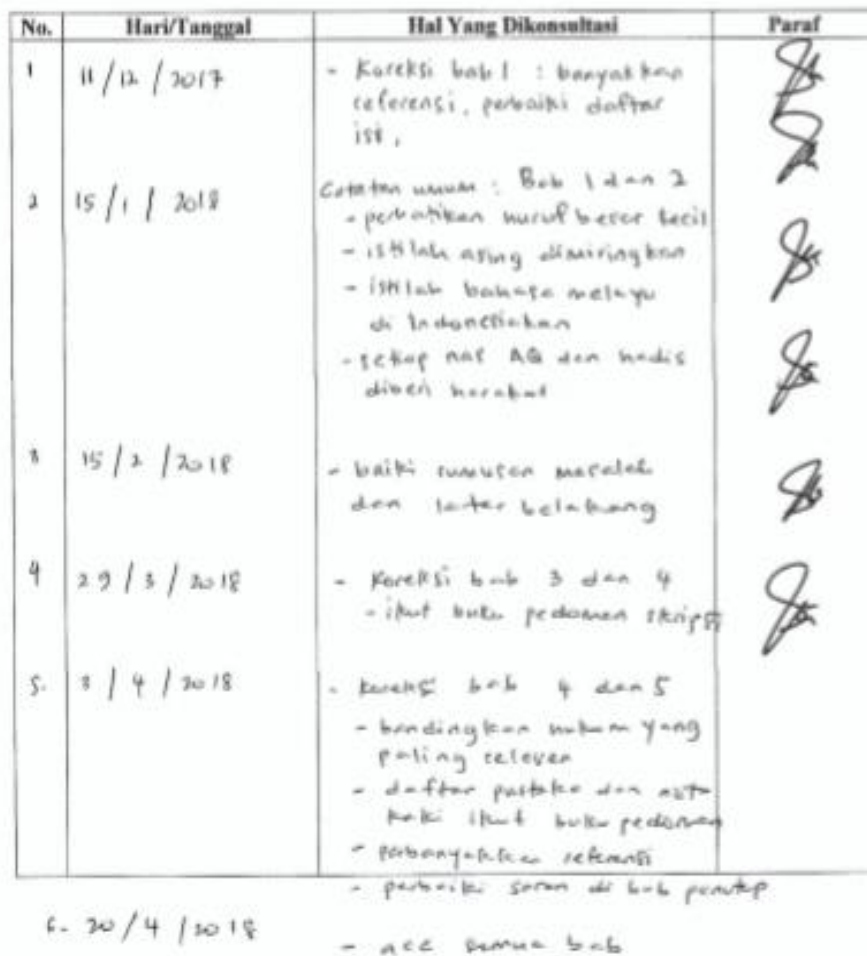 No. Hari/Tanggal Hal Yang Dikonsultasi Paraf
1 11/12/2017 - Koreksi bab 1 : banyakkan
referensi, perbaiki daftar
isi,
2 15/1/2018 Catatan umum : Bab 1 dan 2
- perhatikan huruf besar kecil
- istilah asing dimiringkan
- istilah bahasa melayu
di Indonesiakan
- setiap nas AQ dan hadis
diberi harakat
3 15/2/2018 - baiki rumusan masalah
dan latar belakang
4 29/3/2018 - Koreksi bab 3 dan 4
- ikut buku pedoman skripsi
5. 3/4/2018 - koreksi bab 4 dan 5
- bandingkan hukum yang
paling relevan
- daftar pustaka dan nota
kaki ikut buku pedoman
- perbanyakkan referensi
- perbaiki saran di bab penutup
6. 20/4/2018 - acc semua bab